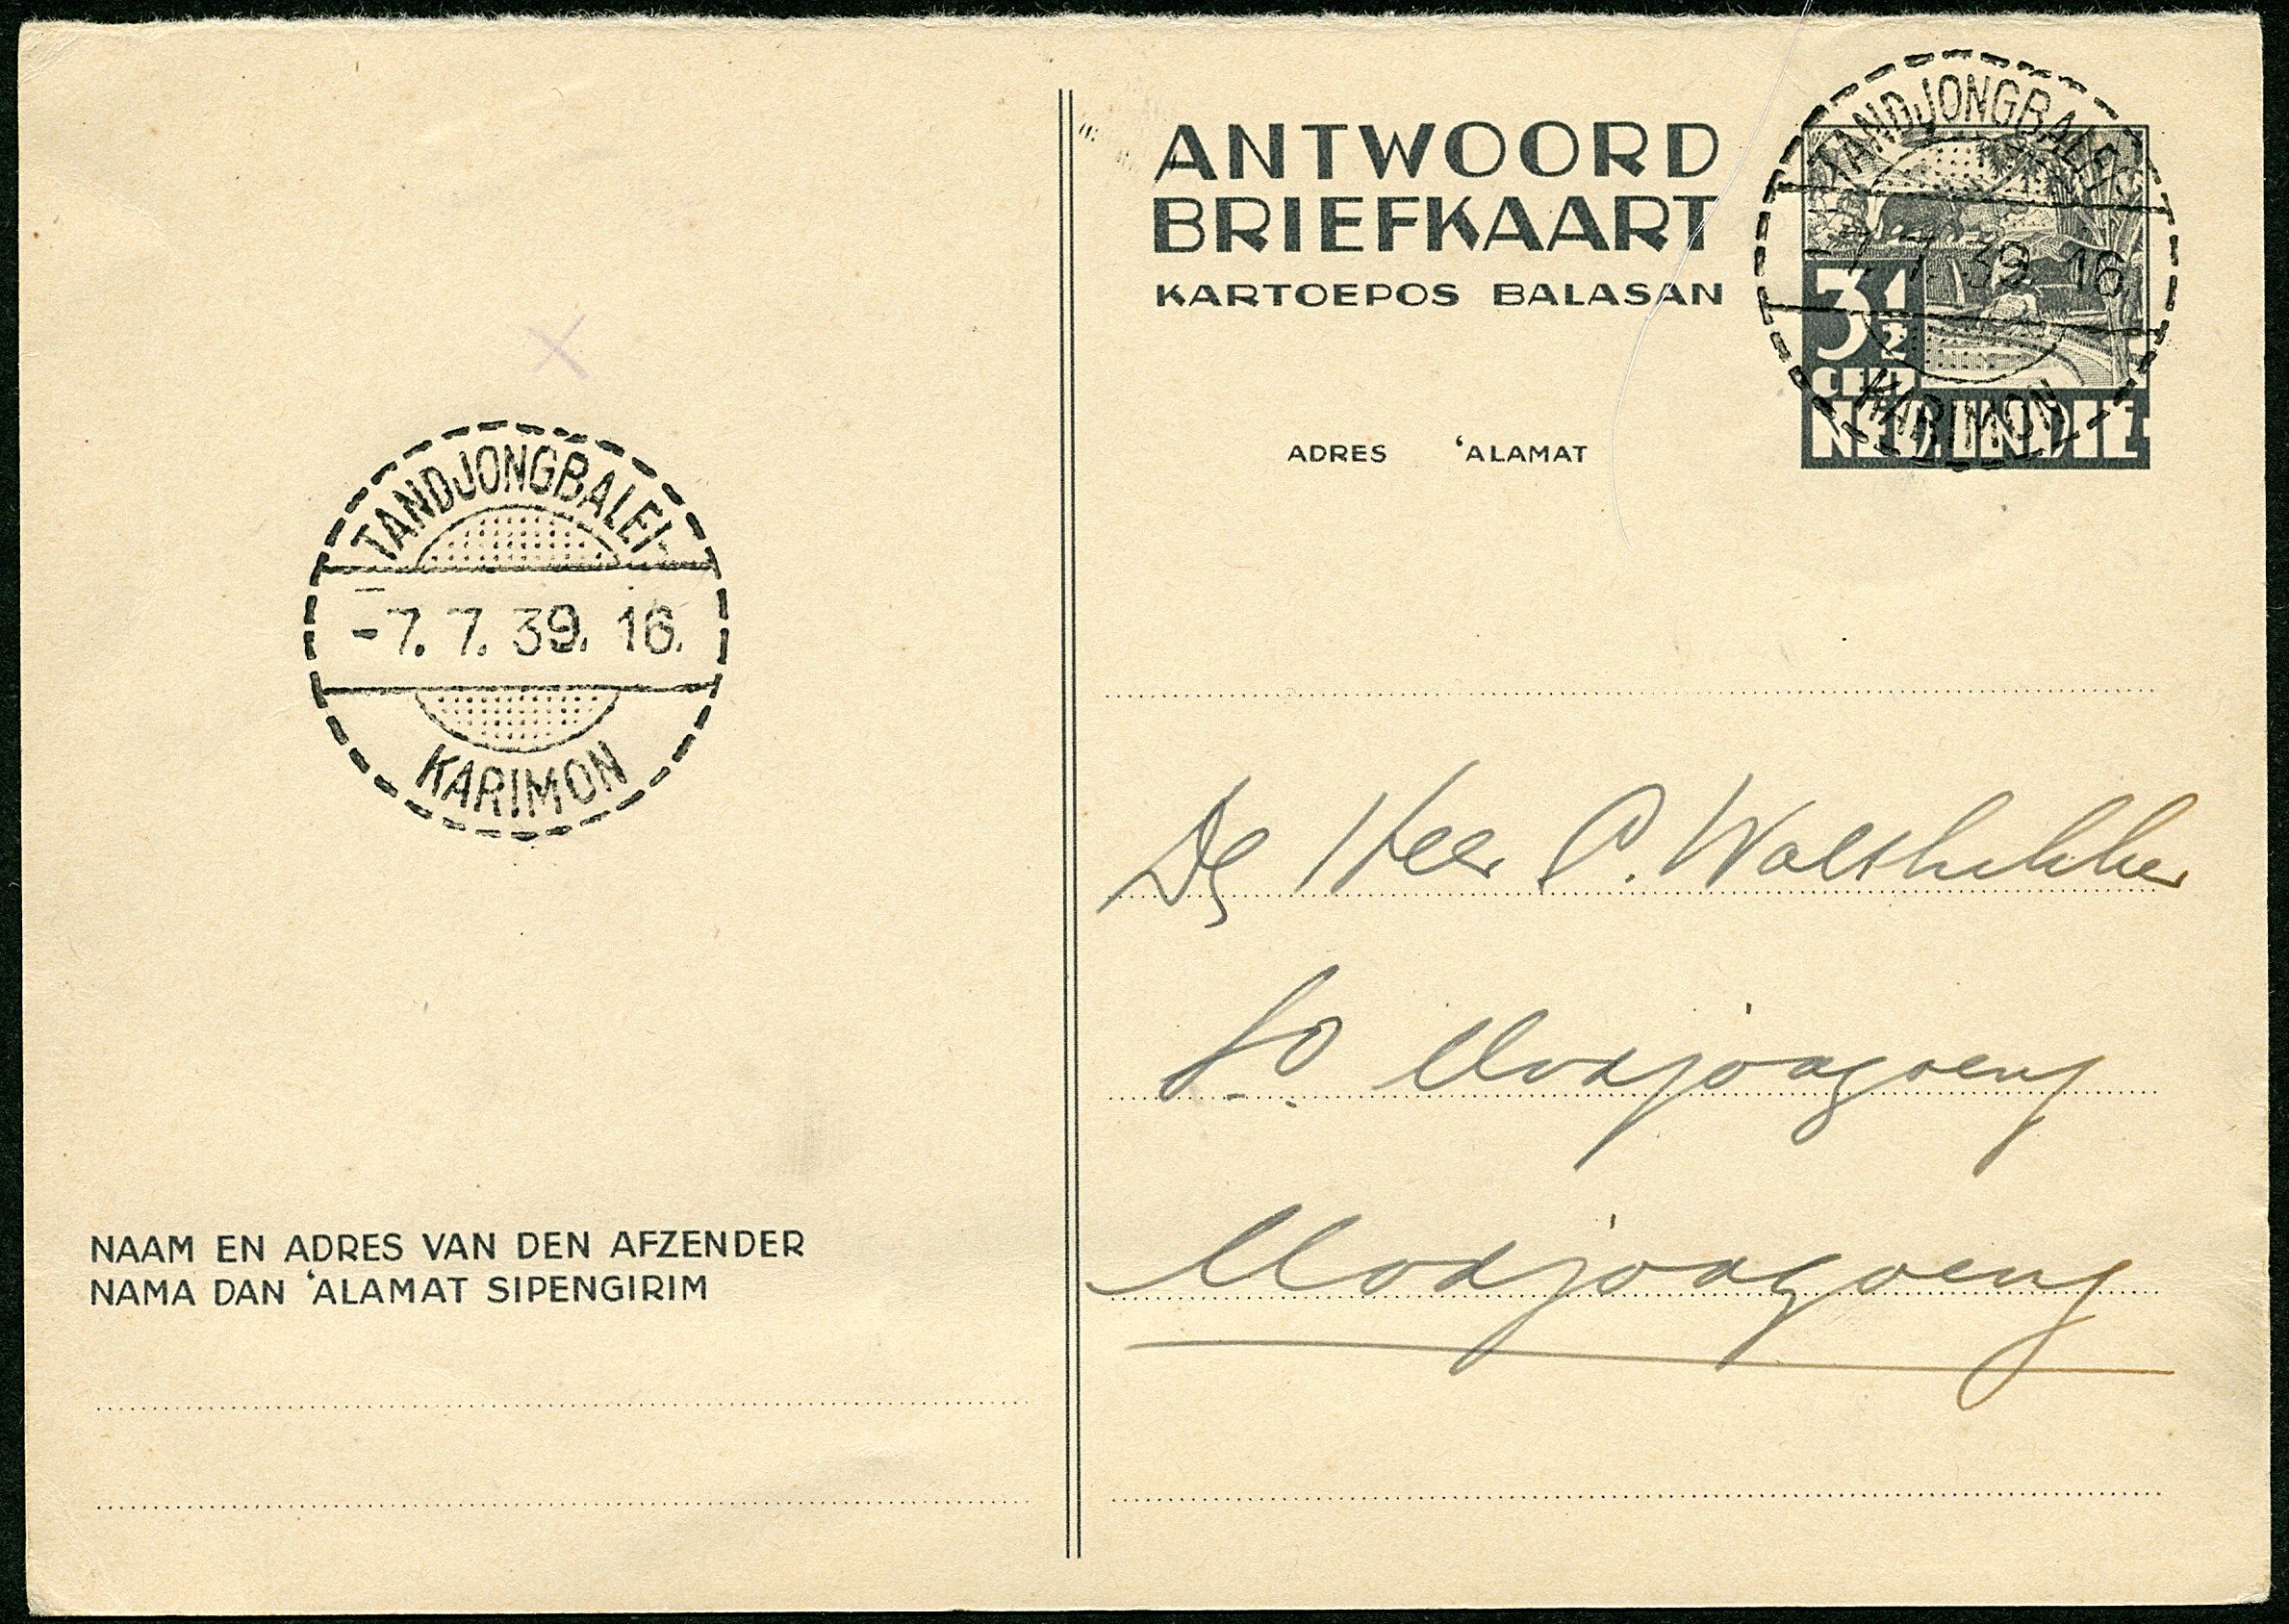 ANTWOORD
BRIEFKAART
KARTOEPOS BALASAN
ADRES ‘ALAMAT
3½
CENT
NED. INDIË
TANDJONGBALEI-
-7. 7. 39. 16.
KARIMON
TANDJONGBALEI-
-7. 7. 39. 16.
KARIMON
De Heer P.
S.O. Modjoagoeng
Modjoagoeng
NAAM EN ADRES VAN DEN AFZENDER
NAMA DAN ‘ALAMAT SIPENGIRIM